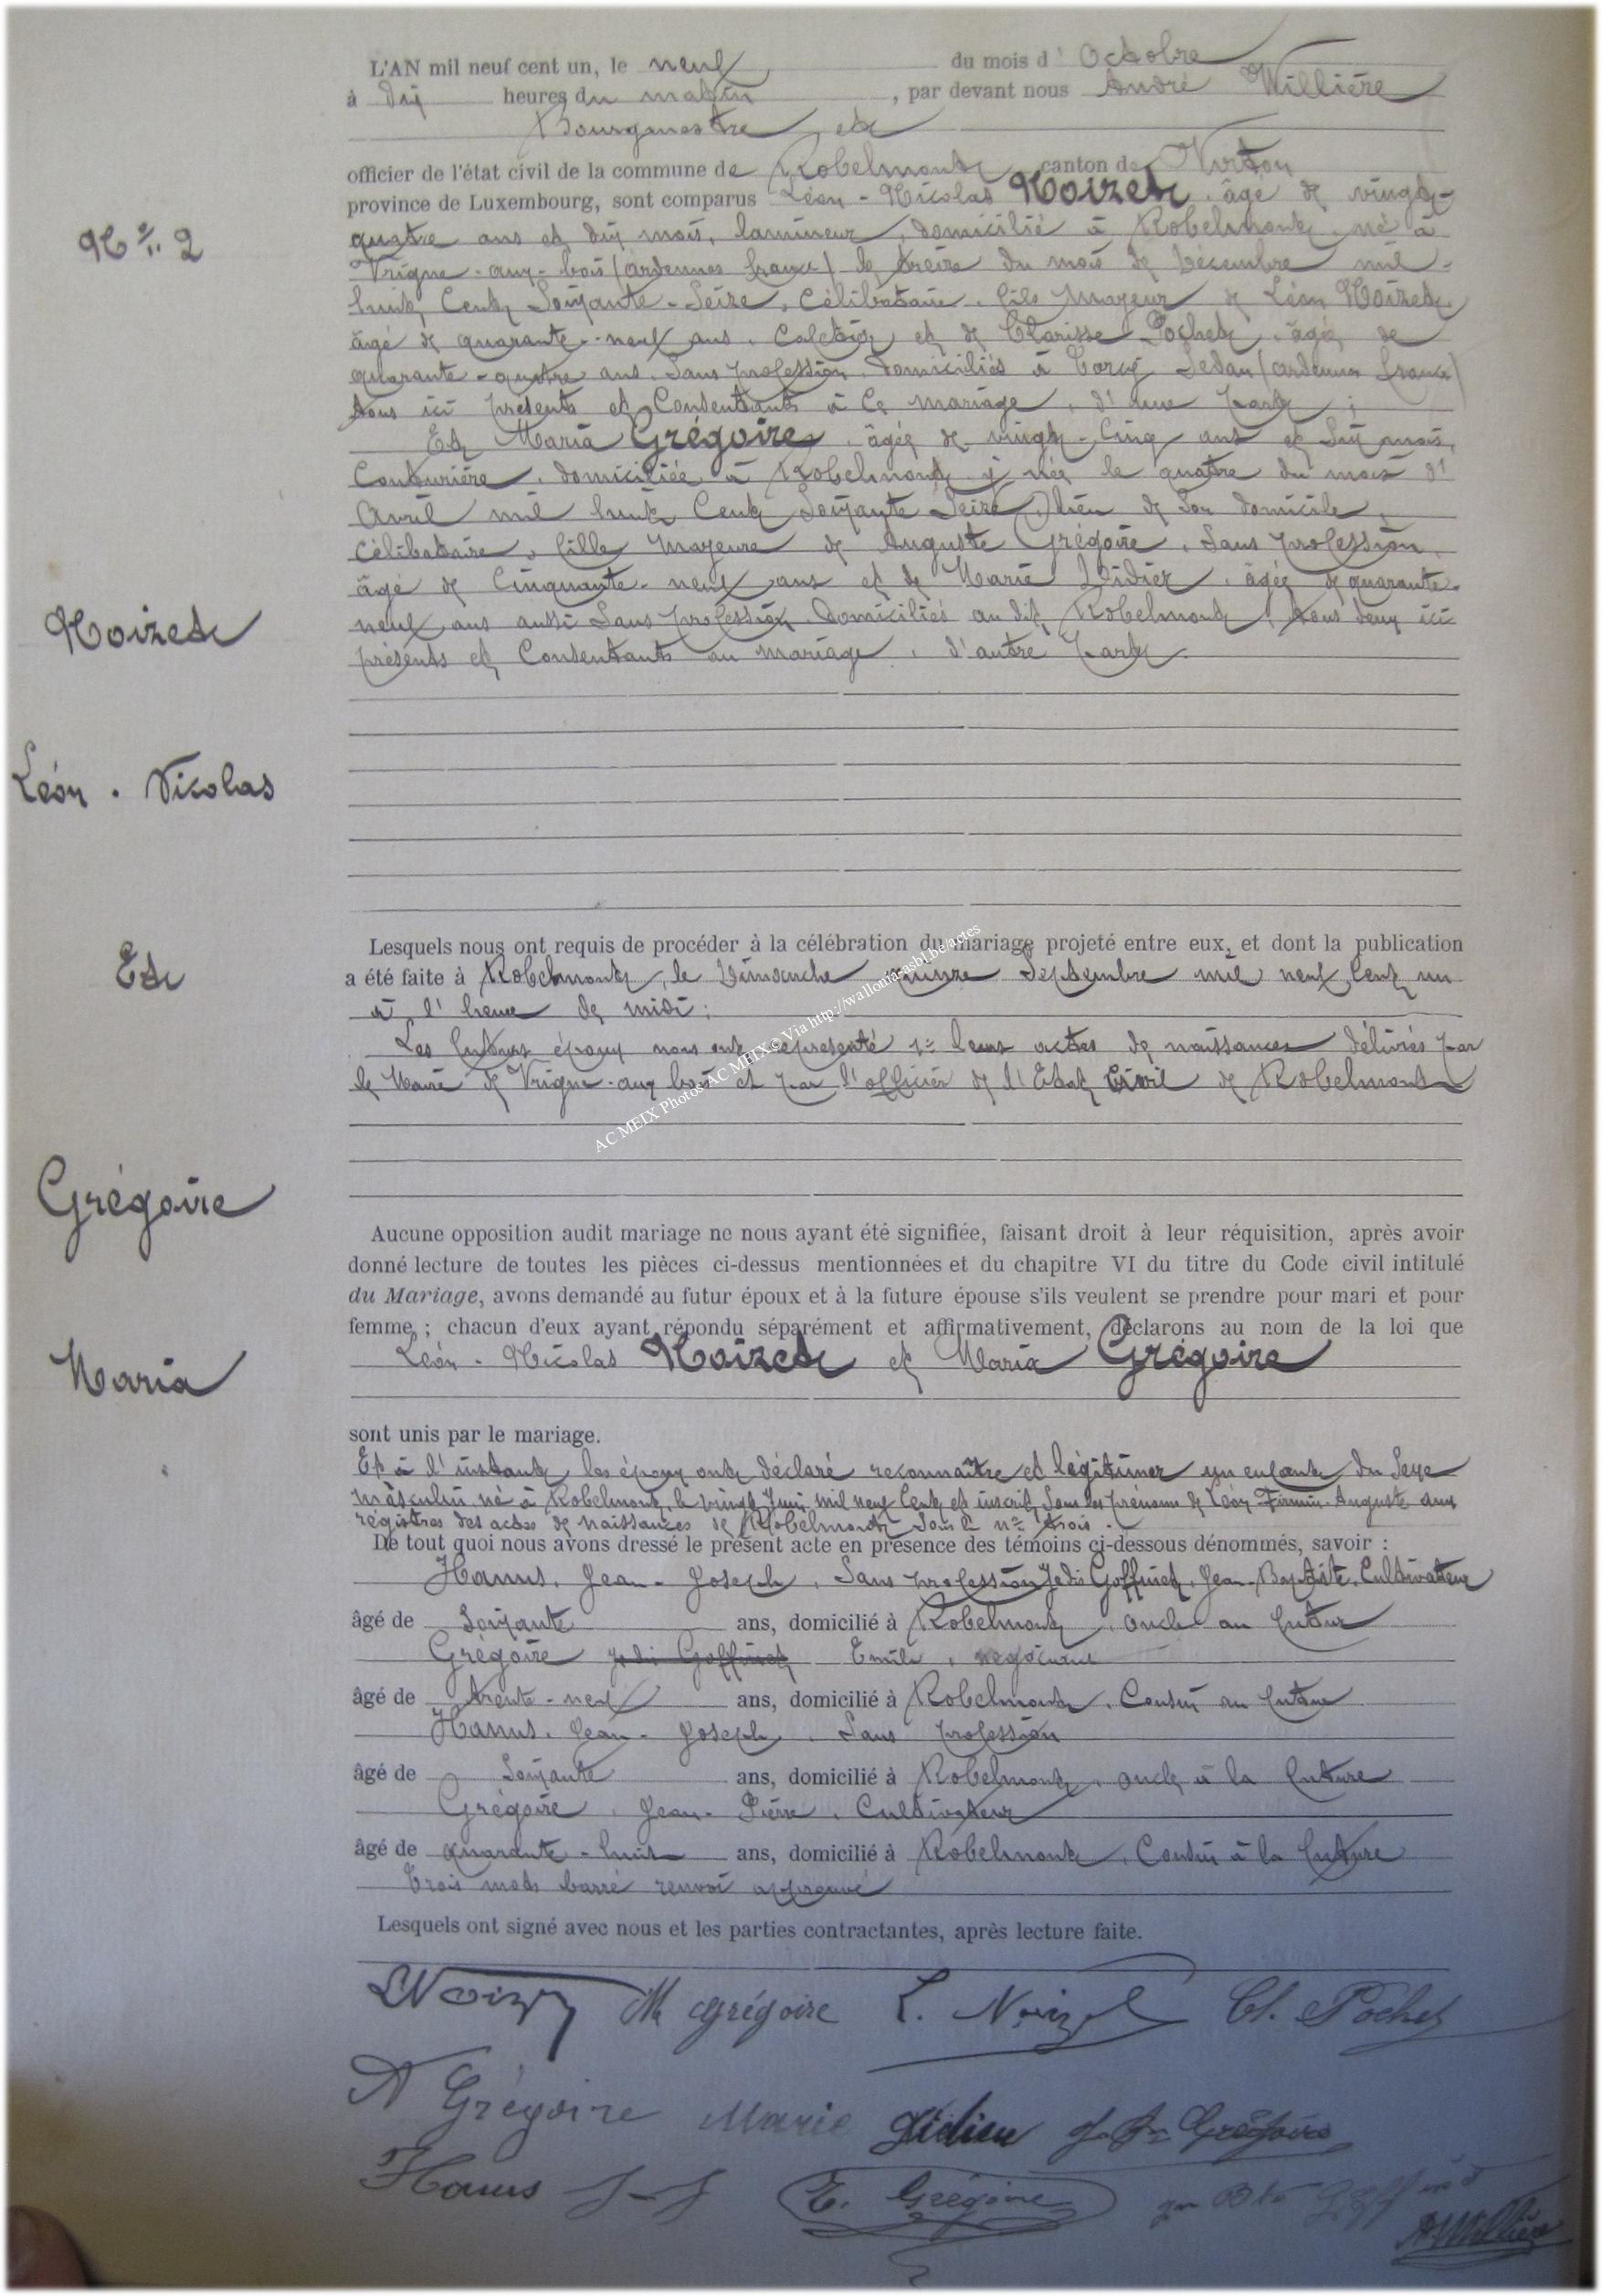 L'AN mil neuf cent un, le neuf du mois d' Octobre
à dix heures du matin, par devant nous André Willière
Bourgmestre et
officier de l'état civil de la commune de Robelmont canton de Virton
province de Luxembourg, sont comparus Léon-Nicolas Noizet, âgé de vingt-
N° 2
quatre ans et dix mois, lamineur, domicilié à Robelmont, né à
Vrigne-aux-bois (ardennes france) le treize du mois de Décembre mil-
huit Cent Soixante-Seize, Célibataire, fils mayeur de Léon Noizet
âgé de quarante-neuf ans, et de Clarisse Pochet, âgée de
quarante-quatre ans, Sans profession, domiciliés à Torcy Sedan (ardennes france)
tous ici présents et Consentants à Ce mariage, d'une part;
Et Maria Grégoire, âgée de vingt-Cinq ans et Six mois,
Couturière, domiciliée à Robelmont y née le quatre du mois d'
Avril mil huit Cent Soixante Seize, lieu de Son domicile,
Célibataire, fille mayeure de Auguste Grégoire, Sans profession,
âgé de Cinquante-neuf ans et de Marie Didier, âgée de quarante-
neuf ans aussi Sans profession, Domiciliés au dit Robelmont, tous deux ici
présents et Consentants au mariage, d'autre part.
Noizet
Léon. Nicolas
Et
Grégoire
Maria
Lesquels nous ont requis de procéder à la célébration du mariage projeté entre eux, et dont la publication
a été faite à Robelmont, le Dimanche quinze Septembre mil neuf Cent un
à l'heure de midi;
Les futurs époux nous ont représenté 1° leurs actes de naissances délivrés par
le Maire de Vrigne-aux bois et par l'officier de l'Etat Civil de Robelmont
AC MEIX Photos AC MEIX © Via http://walloniarasbl.be/actes
Aucune opposition audit mariage ne nous ayant été signifiée, faisant droit à leur réquisition, après avoir
donné lecture de toutes les pièces ci-dessus mentionnées et du chapitre VI du titre du Code civil intitulé
du Mariage, avons demandé au futur époux et à la future épouse s'ils veulent se prendre pour mari et pour
femme; chacun d'eux ayant répondu séparément et affirmativement, déclarons au nom de la loi que
Léon-Nicolas Noizet et Maria Grégoire
sont unis par le mariage.
Et à l'instant les époux ont déclaré reconnaître et légitimer un enfant du Sexe
masculin né à Robelmont, le vingt Juin mil neuf Cent et inscrit Sous les prénoms de Léon-Firmin-Auguste aux
registres des actes de naissances de Robelmont Sous le n° trois.
De tout quoi nous avons dressé le présent acte en présence des témoins ci-dessous dénommés, savoir :
Hanus, Jean-Joseph, Sans profession Je dis Goffinet, Jean-Baptiste, Cultivateur
âgé de Soixante ans, domicilié à Robelmont, oncle au futur
Grégoire je dis Goffinet Emile, négociant
âgé de trente-neuf ans, domicilié à Robelmont, Cousin au futur
Hanus, Jean-Joseph, Sans profession
âgé de Soixante ans, domicilié à Robelmont, oncle à la future
Grégoire, Jean-Pierre, Cultivateur
âgé de quarante-huit ans, domicilié à Robelmont, Cousin à la future
Trois mots barré renvoi approuvé
Lesquels ont signé avec nous et les parties contractantes, après lecture faite.
LNoizet M Grégoire L. Noizet Cl. Pochet
A Grégoire Marie Didier J. P. Grégoire
Hanus J-J E. Grégoire Jn Bte Goffinet
A Willière